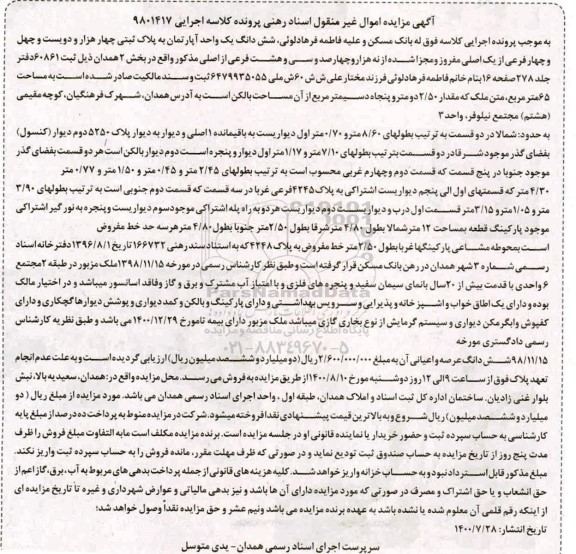 آگهی مزایده اموال غیر منقول اسناد رهنی پرونده کلاسه اجرایی ۹۸۰۱۴۱۷
به موجب پرونده اجرایی کلاسه فوق له بانک مسکن و علیه فاطمه فرهادلوئی، شش دانگ یک واحد آپارتمان به پلاک ثبتی چهار هزار و دویست و چهل
و چهار فرعی از یک اصلی مفروز و مجزا شده از نه هزار و چهارصد و سی و هشت فرعی از اصلی مذکور واقع در بخش ۲ همدان ذیل ثبت ۶۰۸۶۱ دفتر
جلد ۲۷۸ صفحه ۱۶ بنام خانم فاطمه فرهادلوئی فرزند مختار علی ش ش ۶۰ ش ملی ۶۴۷۹۹۳۵۰۵۵ ثبت و سند مالکیت صادر شده است به مساحت
۶۵ متر مربع، متن ملک که مقدار ۲/۵۰ دو متر و پنجاه دسیمتر مربع از آن مساحت بالکن است به آدرس همدان، شهرک فرهنگیان، کوچه مقیمی
(هشتم) مجتمع نیلوفر، واحد ۳
به حدود: شمالا در دو قسمت به ترتیب بطولهای ۸/۶۰ متر و ۰/۷۰ متر اول دیواریست به باقیمانده ۱ اصلی و دیوار به دیوار پلاک ۵۲۵۰ دوم دیوار (کنسول)
بفضای گذر موجود شرقا در دو قسمت بترتیب بطولهای ۷/۱۰ متر و ۱/۱۷ متر اول دیوار و پنجره است دوم دیوار بالکن است هر دو قسمت بفضای گذر
موجود جنوبا در پنج قسمت که قسمت دوم وچهارم غربی محسوب است به ترتیب بطولهای ۲/۴۵ متر و ۰/۴۵ متر و ۱/۵۰ متر و ۰/۷۷ متر
۴/۳۰ متر که قسمتهای اول الی پنجم دیواریست اشتراکی به پلاک ۴۲۴۵ فرعی غربا در سه قسمت که قسمت دوم جنوبی است به ترتیب بطولهای ۳/۹۰
متر و ۱/۰۵ متر و ۳/۱۵ متر قسمت اول درب و دیواریست دوم دیواریست هر دو به راه پله اشتراکی موجود سوم دیواریست و پنجره به نور گیر اشتراکی
موجود پارکینگ قطعه بمساحت ۱۲ متر شمالا بطول ۴/۸۰ متر شرقا بطول ۲/۵۰ متر جنوبا بطول ۴/۸۰ متر هر سه حد خط مفروض
است بمحوطه مشاعی پارکینگها غربا بطول ۲/۵۰ متر خط مفروض به پلاک ۴۲۴۸ که به استناد سند رهنی ۱۶۶۷۳۲ تاریخ ۱۳۹۶/۸/۱ دفترخانه اسناد
رسمی شماره ۳ شهر همدان در رهن بانک مسکن قرار گرفته است و طبق نظر کارشناس رسمی در مورخه ۱۳۹۸/۱۱/۱۵ ملک مزبور در طبقه ۲ مجتمع
۶ واحدی با قدمت بیش از ۲۰ سال بانمای سیمان سفید و پنجره های فلزی و با امتیاز آب مشترک و برق و گاز وفاقد اسانسور میباشد و در اختیار مالک
بوده و دارای یک اطاق خواب و آشپز خانه و پذیرایی و سرویس بهداشتی و دارای پارکینگ و بالکن و کمد دیواری و پوشش دیوارها گچکاری و دارای
کفپوش و ابگرمکن دیواری و سیستم گرمایش از نوع بخاری گازی میباشد ملک مزبور دارای بیمه تا مورخ ۱۴۰۰/۱۲/۲۹ می باشد و طبق نظریه کارشناس
رسمی دادگستری مورخه
۹۸/۱۱/۱۵ شش دانگ عرصه و اعیانی آن به مبلغ ۲/۶۰۰/۰۰۰/۰۰۰ ریال (دو میلیارد و ششصد میلیون ریال) ارزیابی گردیده است و به علت عدم انجام
تعهد پلاک فوق از ساعت ۹ الی ۱۲ روز دوشنبه مورخ ۱۴۰۰/۸/۱۰ از طریق مزایده به فروش می رسد. محل مزایده واقع در: همدان، سعیدیه بالا، نبش
بلوار غنی زادیان، ساختمان اداره کل ثبت اسناد و املاک همدان، طبقه اول ، واحد اجرای اسناد رسمی همدان می باشد. مزایده از مبلغ ریال ( دو
میلیارد و ششصد میلیون) ریال شروع و به بالاترین قیمت پیشنهادی نقدا فروخته میشود. شرکت در مزایده منوط به پرداخت ده درصد از مبلغ پایه
کارشناسی به حساب سپرده ثبت و حضور خریدار یا نماینده قانونی او در جلسه مزایده است. برنده مزایده مکلف است مابه التفاوت مبلغ فروش را ظرف
مدت پنج روز از تاریخ مزایده به حساب صندوق ثبت تودیع نماید و در صورتی که ظرف مهلت مقرر، مانده فروش را به حساب سپرده ثبت واریز نکند.
مبلغ مذکور قابل استرداد نبود و به حساب خزانه واریز خواهد شد. کلیه هزینه های قانونی از جمله پرداخت بدهی های مربوط به آب، برق، گاز اعم از
حق انشعاب و یا حق اشتراک و مصرف در صورتی که مورد مزایده دارای آن ها باشد و نیز بدهی مالیاتی و عوارض شهرداری و غیره تا تاریخ مزایده ای
از اینکه رقم قلمی آن معلوم شده یا نشده باشد به عهده برنده مزایده می باشد ونیم عشر و حق مزایده نقداً وصول خواهد شد؛
تاریخ انتشار: ۱۴۰۰/۷/۲۸
سرپرست اجرای اسناد رسمی همدان- یدی متوسل
ParsNamadData
۰۲۱-۸۸۳۴۹۶۷۰-۵